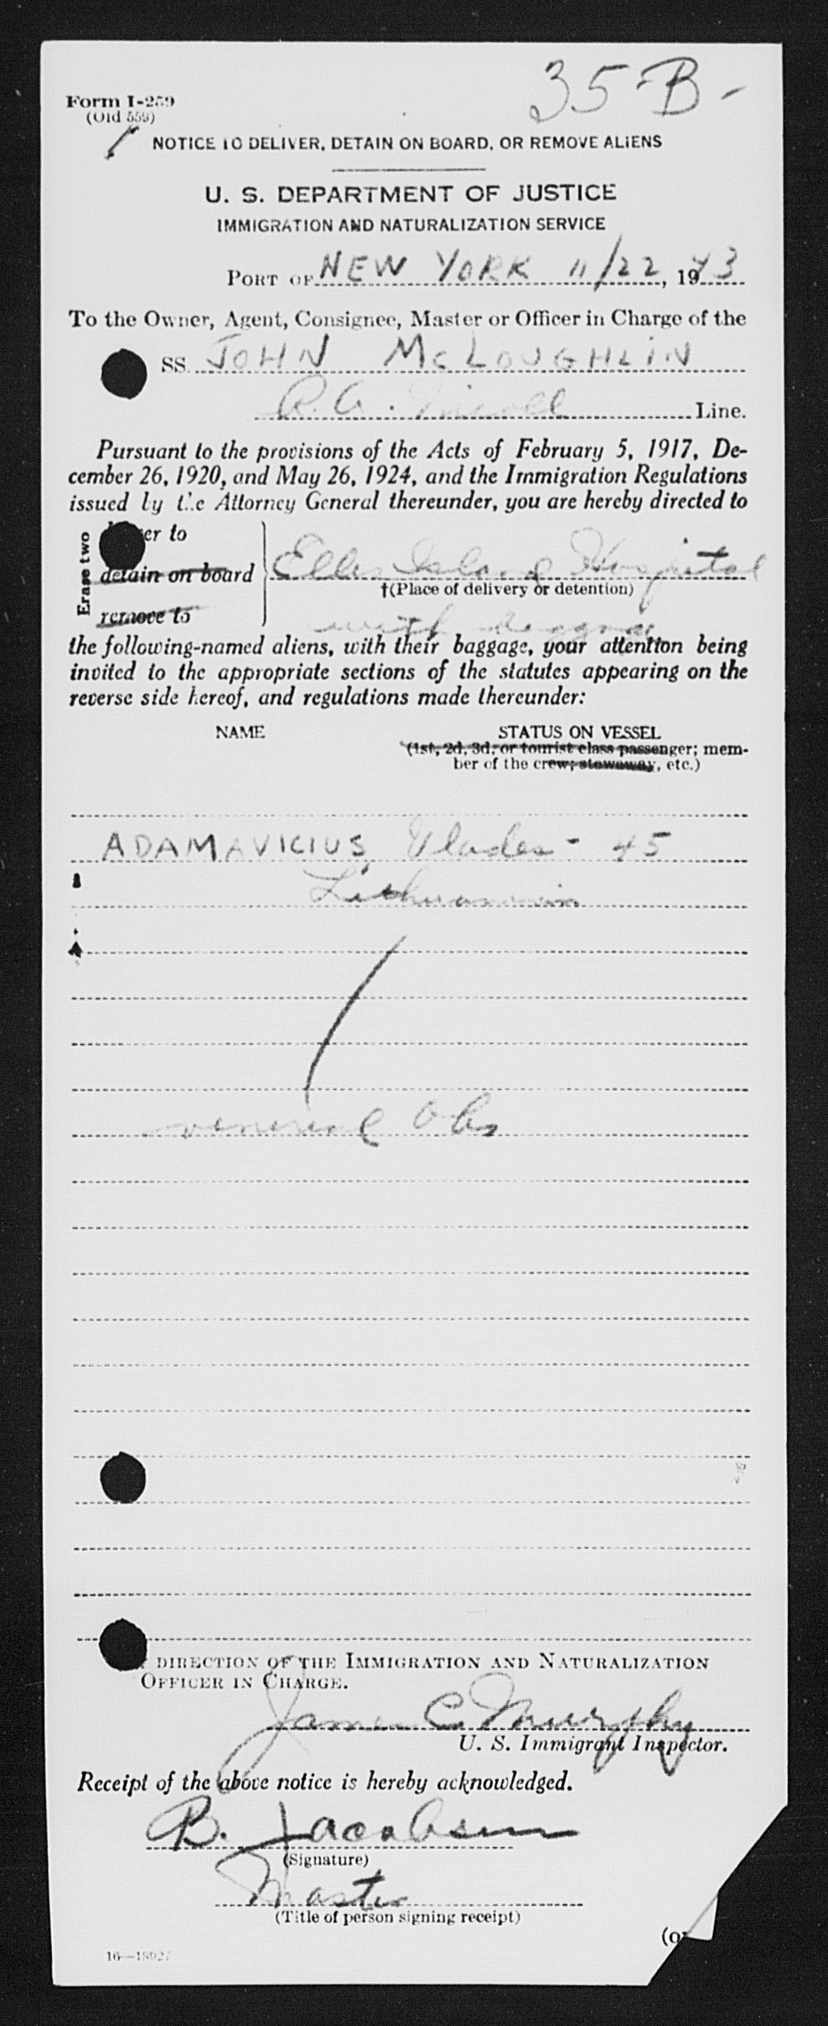 35-B-
Form I-259
(Old 559)
NOTICE TO DELIVER, DETAIN ON BOARD, OR REMOVE ALIENS
U. S. DEPARTMENT OF JUSTICE
IMMIGRATION AND NATURALIZATION SERVICE
PORT OF NEW YORK 11/22, 1943
To the Owner, Agent, Consignee, Master or Officer in Charge of the
SS. JOHN McLOUGHLIN
Line.
Pursuant to the provisions of the Acts of February 5, 1917, De-
cember 26, 1920, and May 26, 1924, and the Immigration Regulations
issued by the Attorney General thereunder, you are hereby directed to
Erase two
er to
detain on board
remove to
Ellis Island Hospital
†(Place of delivery or detention)
with
the following-named aliens, with their baggage, your attention being
invited to the appropriate sections of the statutes appearing on the
reverse side hereof, and regulations made thereunder:
NAME
STATUS ON VESSEL
(1st, 2d, 3d, or tourist class passenger; mem-
ber of the crew; stowaway, etc.)
ADAMAVICIUS, Vlades - 45
Lithuanian
venereal Obs
DIRECTION OF THE IMMIGRATION AND NATURALIZATION
OFFICER IN CHARGE.
James C. Murphy
U. S. Immigrant Inspector.
Receipt of the above notice is hereby acknowledged.
B. Jacobsen
(Signature)
Master
(Title of person signing receipt)